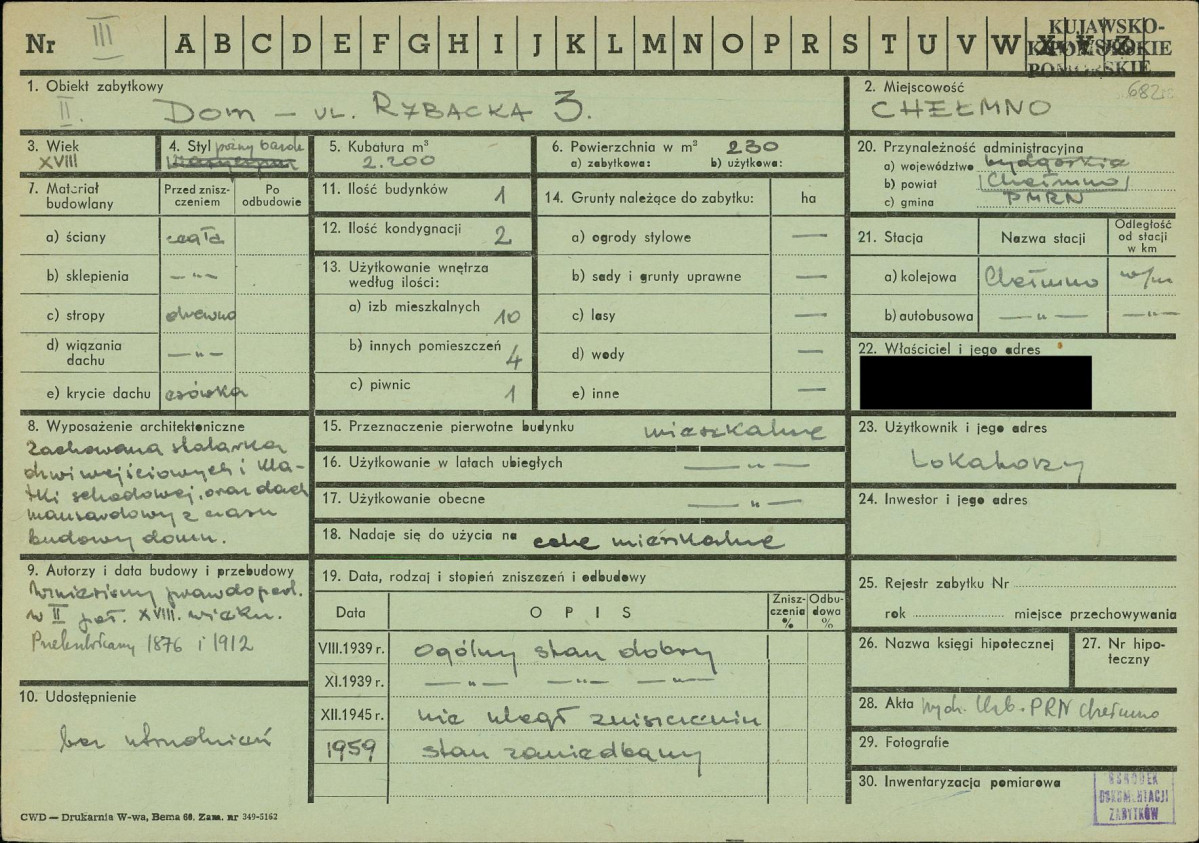 Nr III A B C D E F G H I J K L M N O P R S T U V W X Y Z
KUJAWSKO-
POMORSKIE
682
1. Obiekt zabytkowy
II. DOM – UL. RYBACKA 3.
2. Miejscowość
CHEŁMNO
3. Wiek
XVIII
4. Styl późny barok
5. Kubatura m³
2.200
6. Powierzchnia w m² 230
a) zabytkowa: b) użytkowa:
20. Przynależność administracyjna
a) województwo bydgoskie
b) powiat (Chełmno)
c) gmina PMRN
7. Materiał budowlany
Przed znisz-
czeniem
Po
odbudowie
a) ściany cegła
b) sklepienia –„–
c) stropy drewno
d) wiązania
dachu –„–
e) krycie dachu esówka
11. Ilość budynków 1
12. Ilość kondygnacji 2
13. Użytkowanie wnętrza
według ilości:
a) izb mieszkalnych 10
b) innych pomieszczeń 4
c) piwnic 1
14. Grunty należące do zabytku: ha
a) ogrody stylowe —
b) sady i grunty uprawne —
c) lasy —
d) wody —
e) inne —
21. Stacja Nazwa stacji
Odległość
od stacji
w km
a) kolejowa Chełmno w/m
b) autobusowa —„— —„—
22. Właściciel i jego adres
8. Wyposażenie architektoniczne
Zachowana stolarka
drzwi wejściowych i kla-
tki schodowej, oraz dach
mansardowy z czasu
budowy domu.
15. Przeznaczenie pierwotne budynku mieszkalne
16. Użytkowanie w latach ubiegłych —„—
17. Użytkowanie obecne —„—
18. Nadaje się do użycia na cele mieszkalne
23. Użytkownik i jego adres
Lokatorzy
24. Inwestor i jego adres
9. Autorzy i data budowy i przebudowy
Wzniesiony prawdopod.
w II poł. XVIII. wieku.
Przebudowany 1876 i 1912
10. Udostępnienie
bez utrudnień
19. Data, rodzaj i stopień zniszczeń i odbudowy
Data OPIS
Znisz-
czenia
%
Odbu-
dowa
%
VIII.1939 r. ogólny stan dobry
XI.1939 r. —„— —„— —„—
XII.1945 r. nie uległ zniszczeniu
1959 stan zaniedbany
25. Rejestr zabytku Nr
rok miejsce przechowywania
26. Nazwa księgi hipotecznej
27. Nr hipo-
teczny
28. Akta Wydz. Urb. PRN Chełmno
29. Fotografie
30. Inwentaryzacja pomiarowa
OŚRODEK
DOKUMENTACJI
ZABYTKÓW
CWD — Drukarnia W-wa, Bema 60. Zam. nr 349-5162